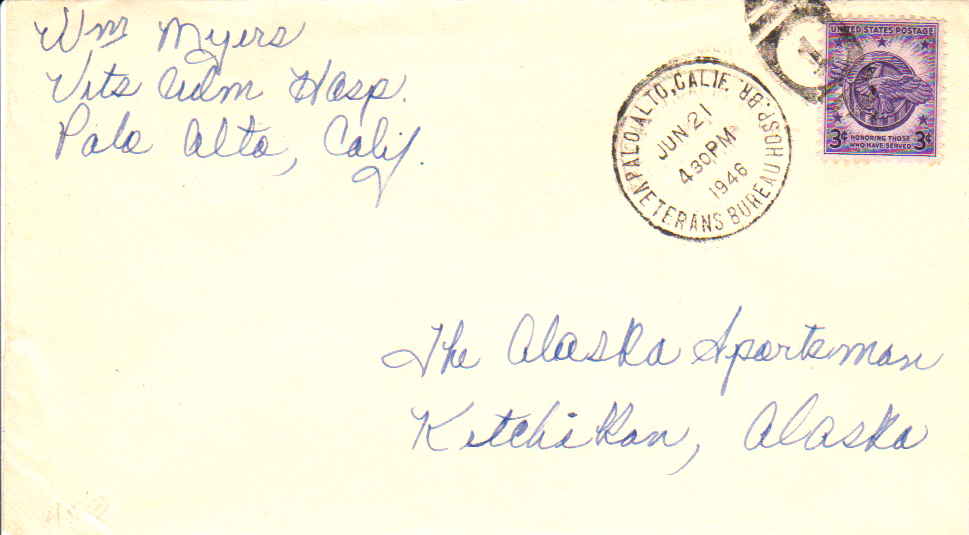 Wm Myers
Vets Adm Hosp.
Palo Alto, Calif.
PALO ALTO, CALIF.
JUN 21
4 30 PM
1946
VETERANS BUREAU HOSP. BR.
1
UNITED STATES POSTAGE
3¢ HONORING THOSE WHO HAVE SERVED 3¢
The Alaska Sportsman
Ketchikan, Alaska